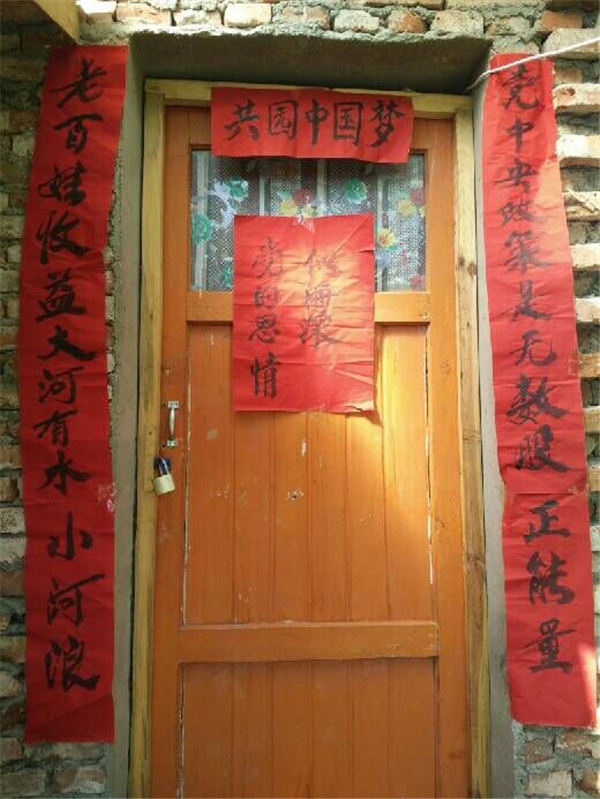 共园中国梦
党中央政策是无数股正能量
老百姓收益大河有水小河浪
党的恩情
似海深